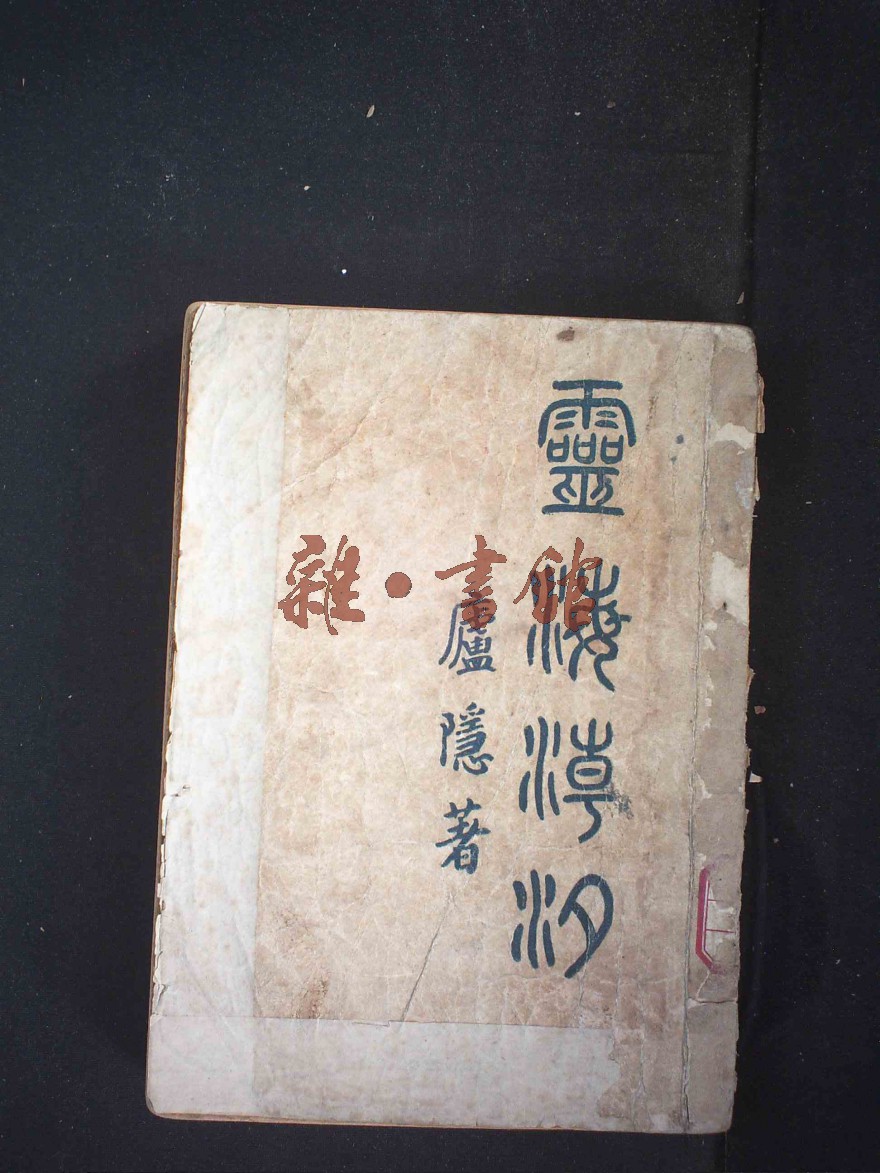 靈海潮汐
廬隱著
雜·書館